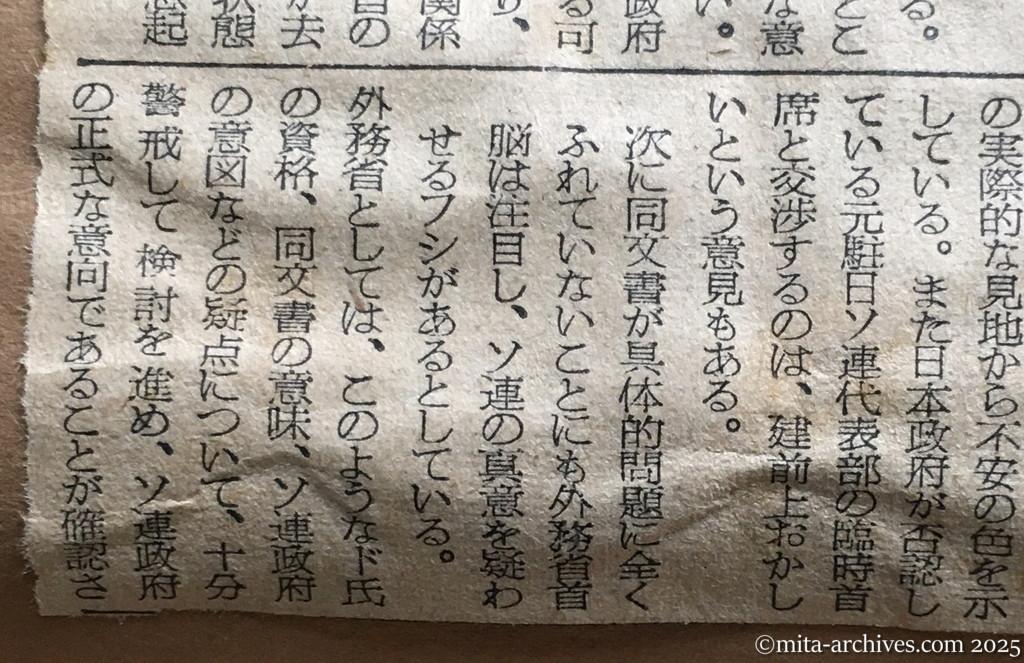 る。
とこ
な意
い。
政府
る可
り、
関係
自の
が去
状態
惹起
の実際的な見地から不安の色を示
している。また日本政府が否認し
ている元駐日ソ連代表部の臨時首
席と交渉するのは、建前上おかし
いという意見もある。
次に同文書が具体的問題に全く
ふれていないことにも外務省首
脳は注目し、ソ連の真意を疑わ
せるフシがあるとしている。
外務省としては、このようなド氏
の資格、同文書の意味、ソ連政府
の意図などの疑点について、十分
警戒して検討を進め、ソ連政府
の正式な意向であることが確認さ
©mita-archives.com 2025